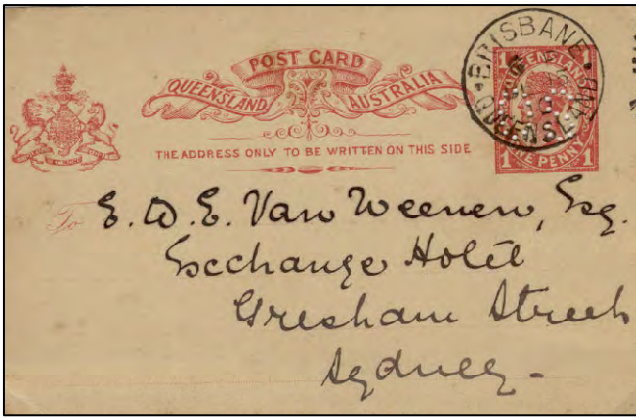 POST CARD
QUEENSLAND, AUSTRALIA
THE ADDRESS ONLY TO BE WRITTEN ON THIS SIDE
BRISBANE
QUEENSLAND
1 QUEENSLAND 1
1 ONE PENNY 1
To E. W. E. Van Weenen, Esq.
Exchange Hotel
Gresham Street
Sydney.